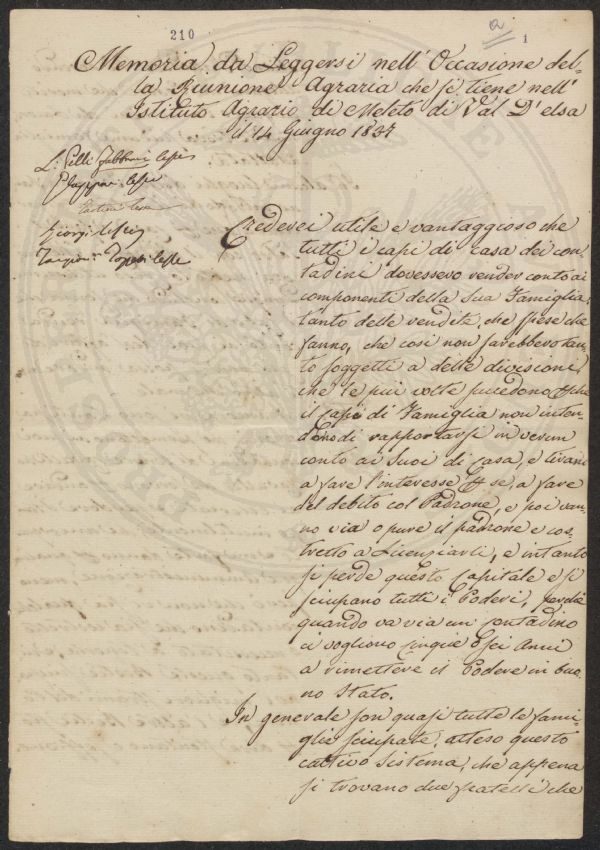 210
a
1
Memoria da Leggersi nell' Occasione del=
la Riunione Agraria che si tiene nell'
Istituto Agrario di Meleto di Val D'elsa
il 14 Giugno 1837
L: Pelli Fabbroni lesse
lesse
Giorgi lesse
lesse
Crederei utile e vantaggioso che
tutti i capi di casa dei con
tadini dovessero render conto ai
componenti della Sua Famiglia,
tanto delle vendite, che spese che
fanno, che così non sarebbero tan
to soggetti a delle divisioni,
che le più volte succedono
il Capo di Famiglia non inten
dono di rapportarsi in verun
conto ai Suoi di casa, e tirano
a fare l'interesse p se, a fare
del debito col Padrone, e poi van
no via o pure il padrone e cos
tretto a Licenziarli, e intanto
si perde questo Capitale e si
sciupano tutti i Poderi, perche
quando va via un contadino
ci vogliono cinque o sei Anni
a rimettere il Podere in buo
no Stato.
In generale son quasi tutte le fami
glie sciupate, atteso questo
cattivo Sistema, che appena
si trovano due fratelli che